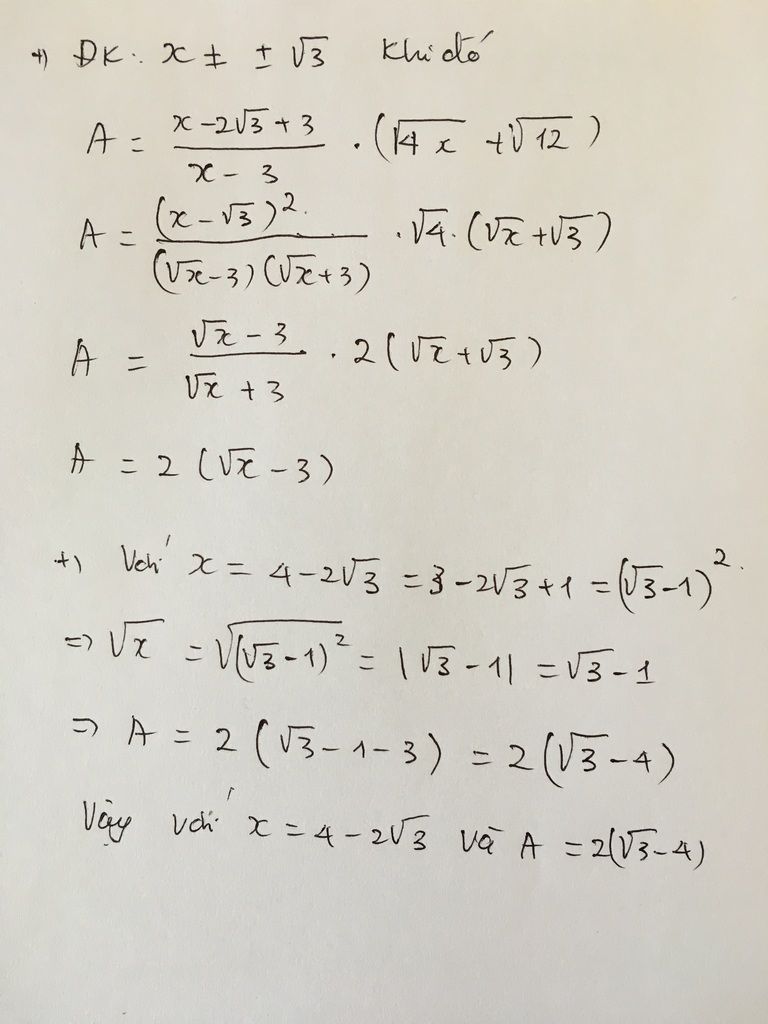 +) ĐK: x ≠ ± √3 Khi đó
A = (x - 2√3 + 3)/(x - 3) . (√4x + √12)
A = (x - √3)²/((√x - 3)(√x + 3)) . √4 . (√x + √3)
A = (√x - 3)/(√x + 3) . 2(√x + √3)
A = 2(√x - 3)
+) Với x = 4 - 2√3 = 3 - 2√3 + 1 = (√3 - 1)².
=> √x = √(√3 - 1)² = |√3 - 1| = √3 - 1
=> A = 2(√3 - 1 - 3) = 2(√3 - 4)
Vậy với x = 4 - 2√3 và A = 2(√3 - 4)